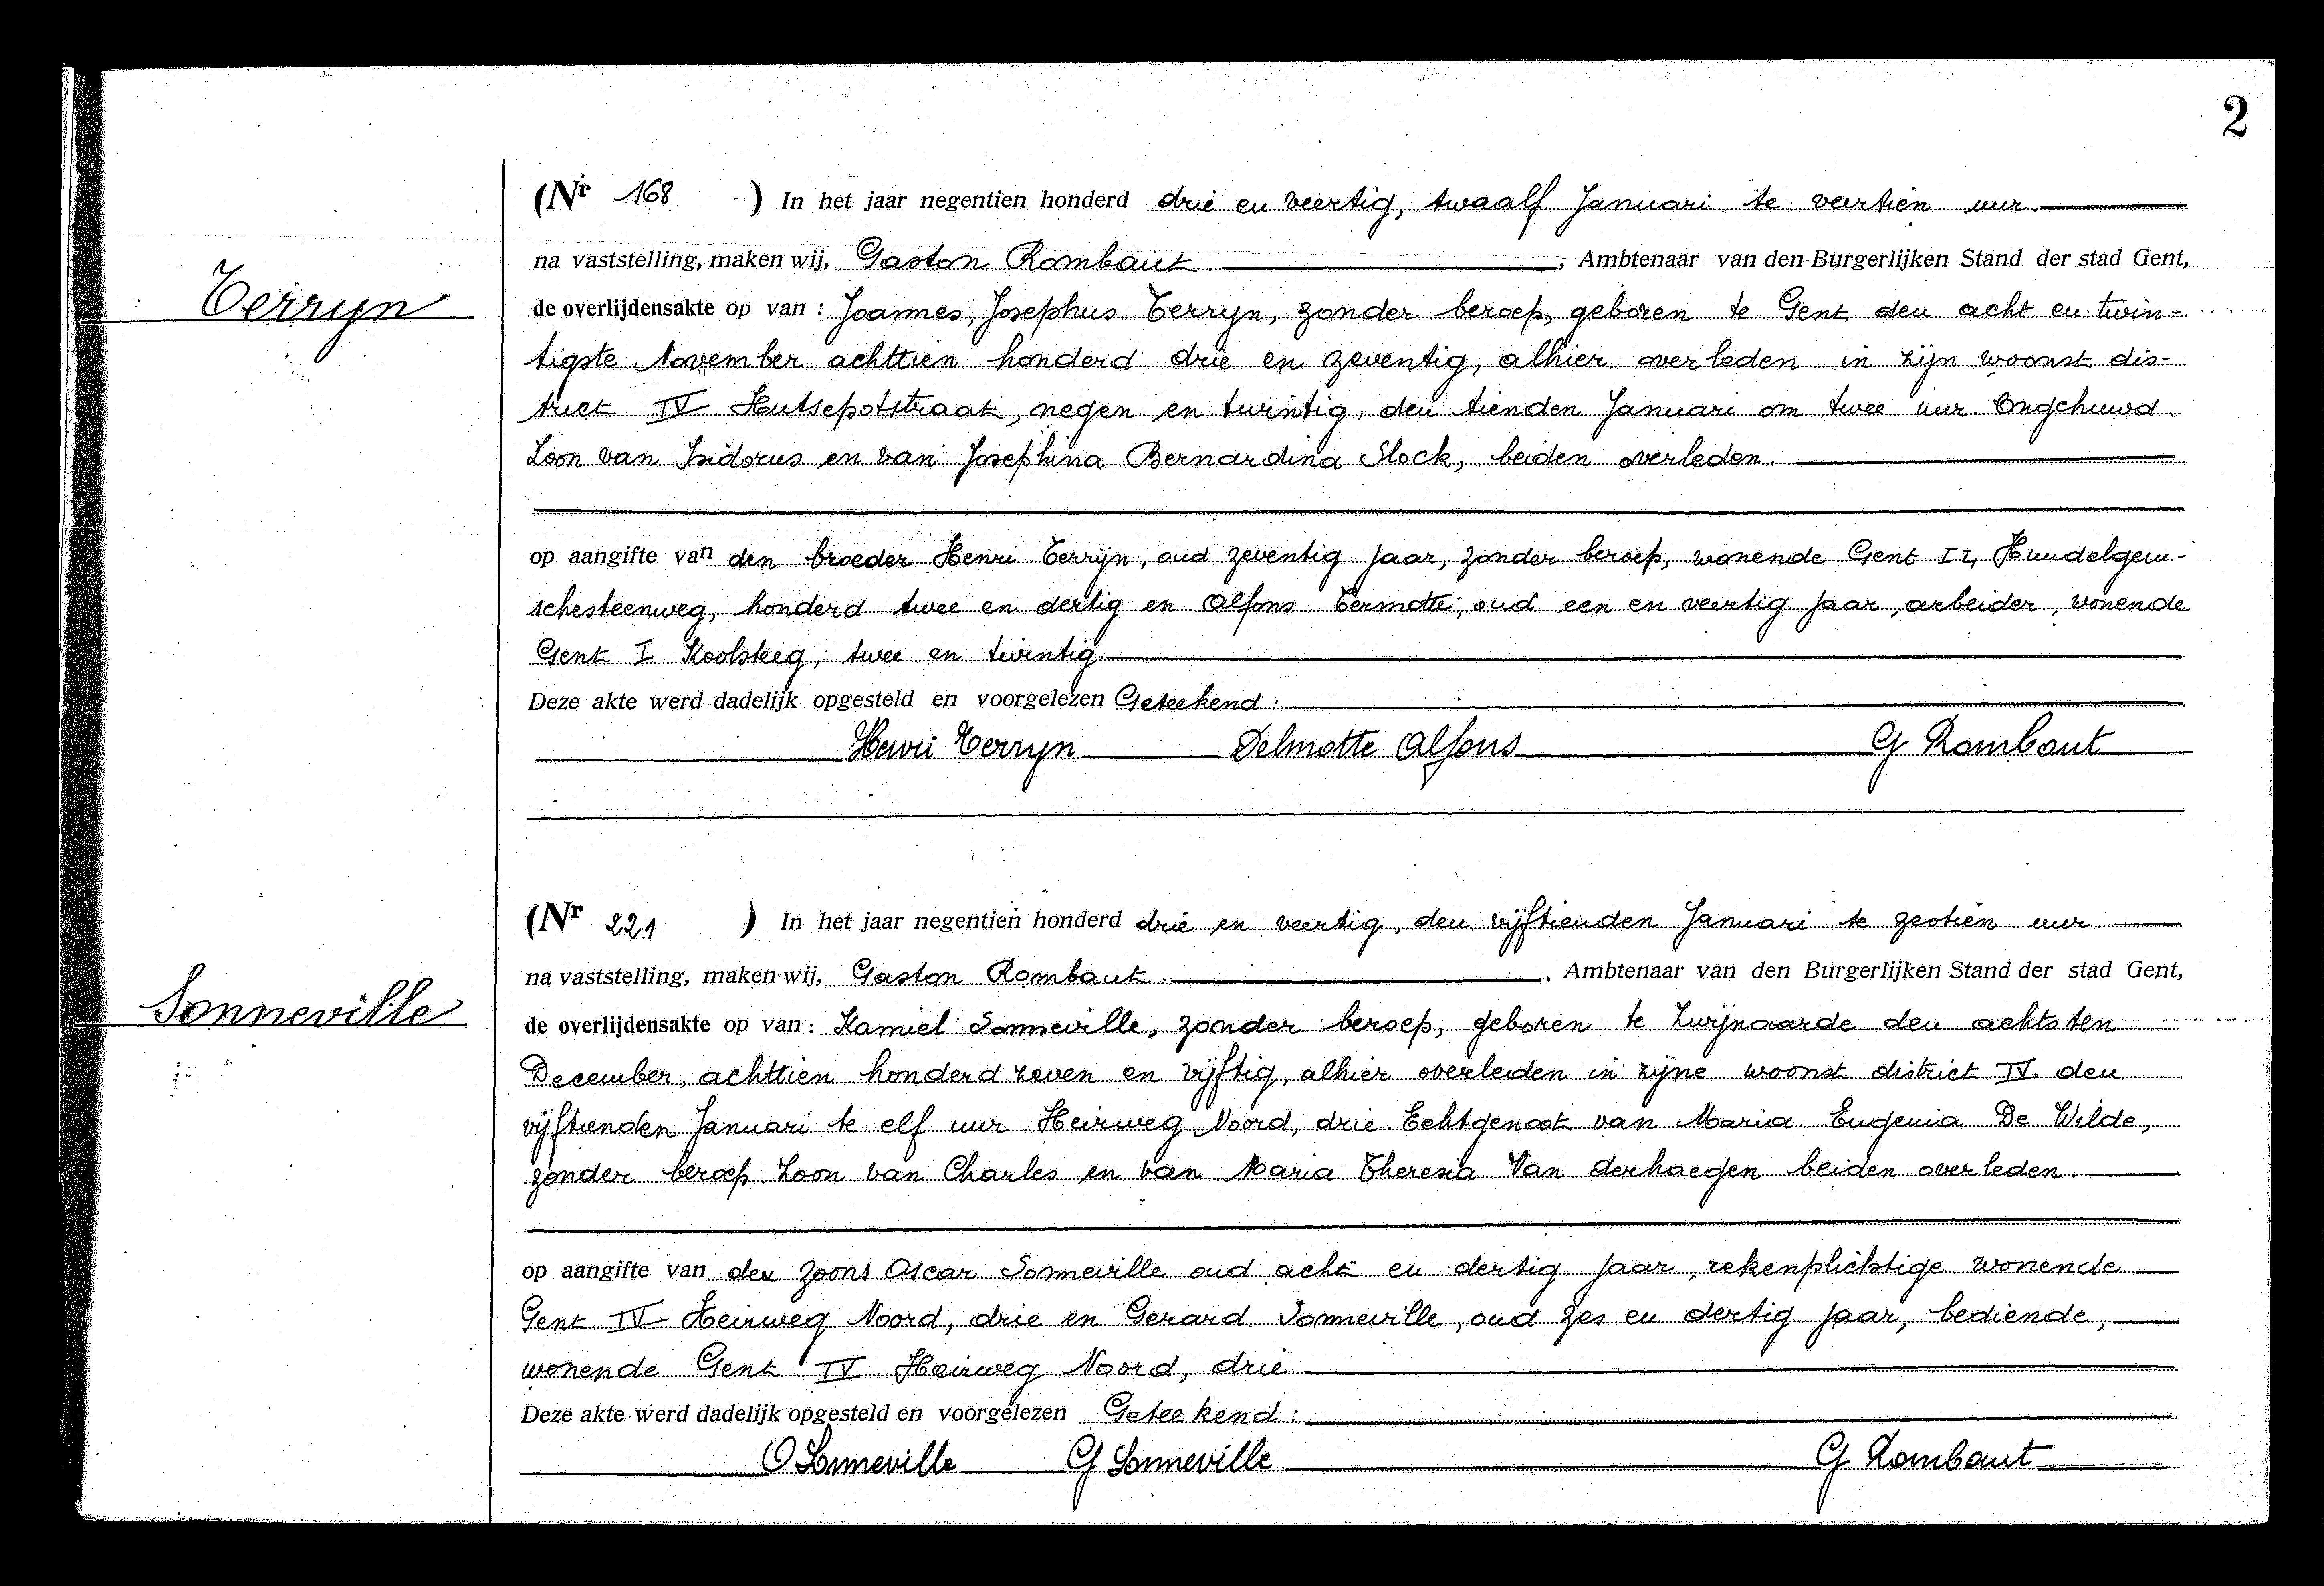 2
(Nr 168 ) In het jaar negentien honderd drie en veertig, twaalf Januari te veertien uur
na vaststelling, maken wij, Gaston Rombaut, Ambtenaar van den Burgerlijken Stand der stad Gent,
Terryn
de overlijdensakte op van : Joannes, Josephus Terryn, zonder beroep, geboren te Gent den acht en twin-
tigste November achttien honderd drie en zeventig, alhier overleden in zijn woonst dis-
trict IV Hutsepotstraat, negen en twintig, den tienden Januari om twee uur. Ongehuwd.
Zoon van Isidorus en van Josephina Bernardina Slock, beiden overleden.
op aangifte van den broeder Henri Terrijn, oud zeventig jaar, zonder beroep, wonende Gent II, Hundelgem-
schesteenweg, honderd twee en dertig en Alfons Termotte, oud een en veertig jaar, arbeider, wonende
Gent I Koolsteeg, twee en twintig
Deze akte werd dadelijk opgesteld en voorgelezen Geteekend :
Henri Terryn Delmotte Alfons G Rombaut
(Nr 221 ) In het jaar negentien honderd drie en veertig, den vijftienden Januari te zestien uur
na vaststelling, maken wij, Gaston Rombaut, Ambtenaar van den Burgerlijken Stand der stad Gent,
Sonneville
de overlijdensakte op van : Kamiel Sonneville, zonder beroep, geboren te Zwijnaarde den achtsten
December, achttien honderd zeven en vijftig, alhier overleden in zijne woonst district IV den
vijftienden Januari te elf uur Heirweg Noord, drie. Echtgenoot van Maria Eugenia De Wilde,
zonder beroep. Zoon van Charles en van Maria Theresia Van derhaegen beiden overleden.
op aangifte van den zoons Oscar Sonneville oud acht en dertig jaar, rekenplichtige wonende
Gent IV Heirweg Noord, drie en Gerard Sonneville, oud zes en dertig jaar, bediende,
wonende Gent IV Heirweg Noord, drie
Deze akte werd dadelijk opgesteld en voorgelezen Geteekend :
O Sonneville G Sonneville G Rombaut